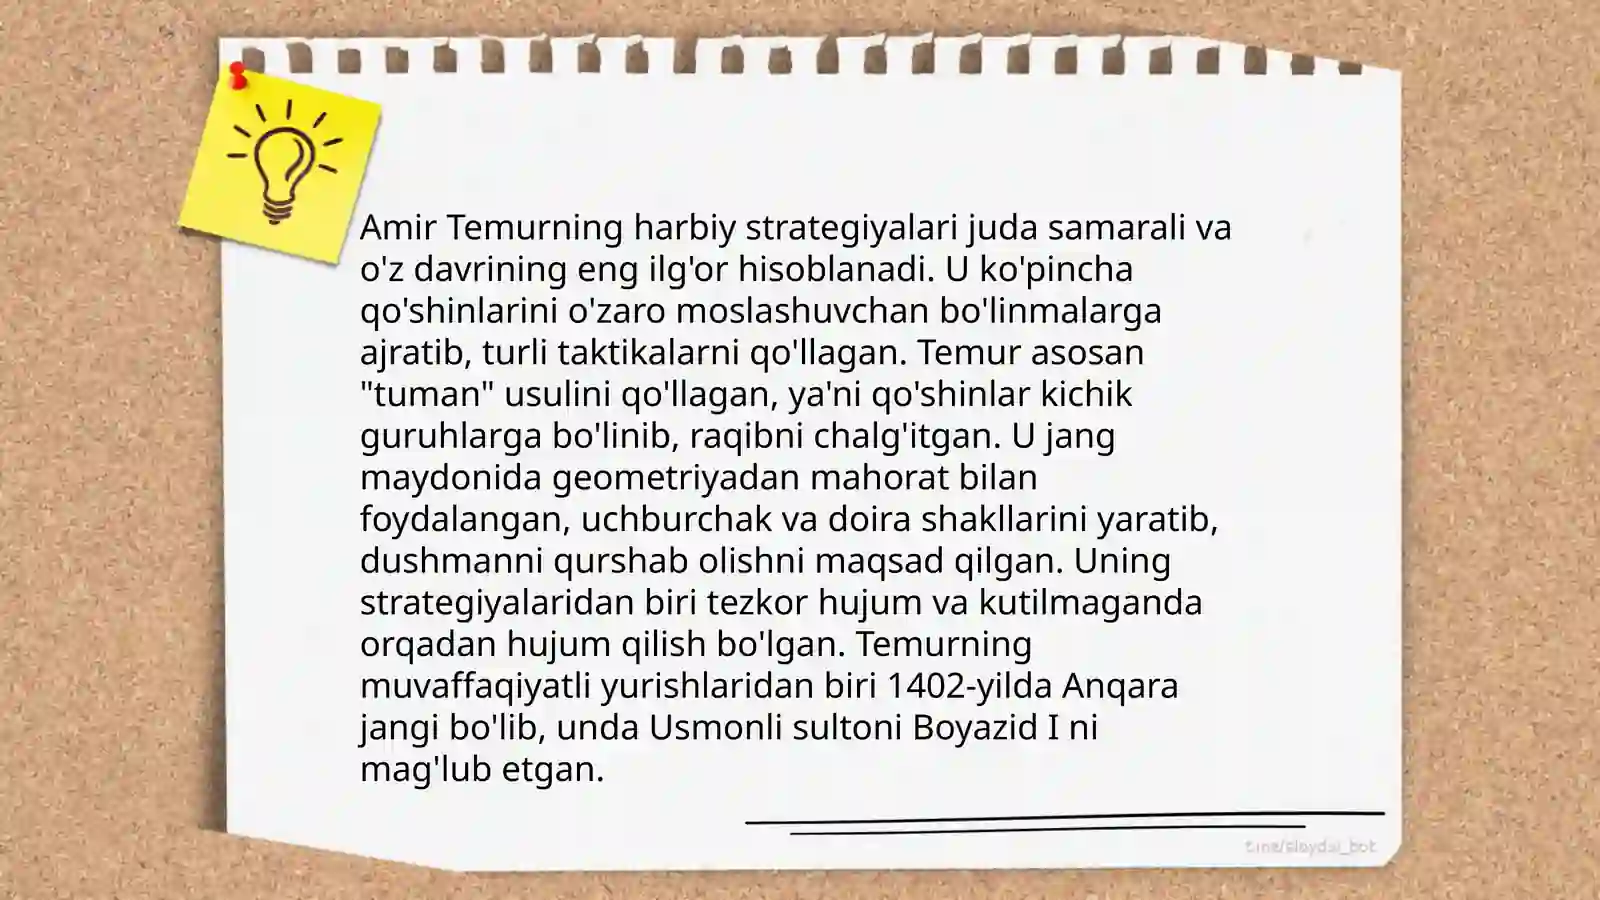 Amir Temurning harbiy strategiyalari juda samarali va
o'z davrining eng ilg'or hisoblanadi. U ko'pincha
qo'shinlarini o'zaro moslashuvchan bo'linmalarga
ajratib, turli taktikalarni qo'llagan. Temur asosan
"tuman" usulini qo'llagan, ya'ni qo'shinlar kichik
guruhlarga bo'linib, raqibni chalg'itgan. U jang
maydonida geometriyadan mahorat bilan
foydalangan, uchburchak va doira shakllarini yaratib,
dushmanni qurshab olishni maqsad qilgan. Uning
strategiyalaridan biri tezkor hujum va kutilmaganda
orqadan hujum qilish bo'lgan. Temurning
muvaffaqiyatli yurishlaridan biri 1402-yilda Anqara
jangi bo'lib, unda Usmonli sultoni Boyazid I ni
mag'lub etgan.